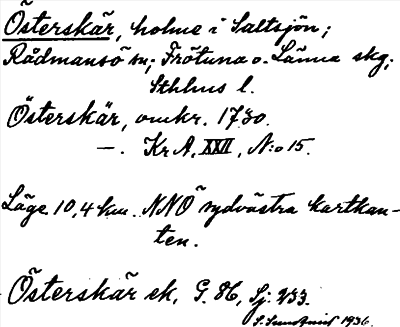 Österskär, holme i Saltsjön;
Rådmansö sn; Frötuna o. Länna skg;
Sthlms l.
Österskär, omkr. 1730.
—. Kr A, XXII, N:o 15.
Läge 10,4 km. NNO sydvästra kartkan-
ten.
Österskär ek, G. 86, Sj: 233.
1936.